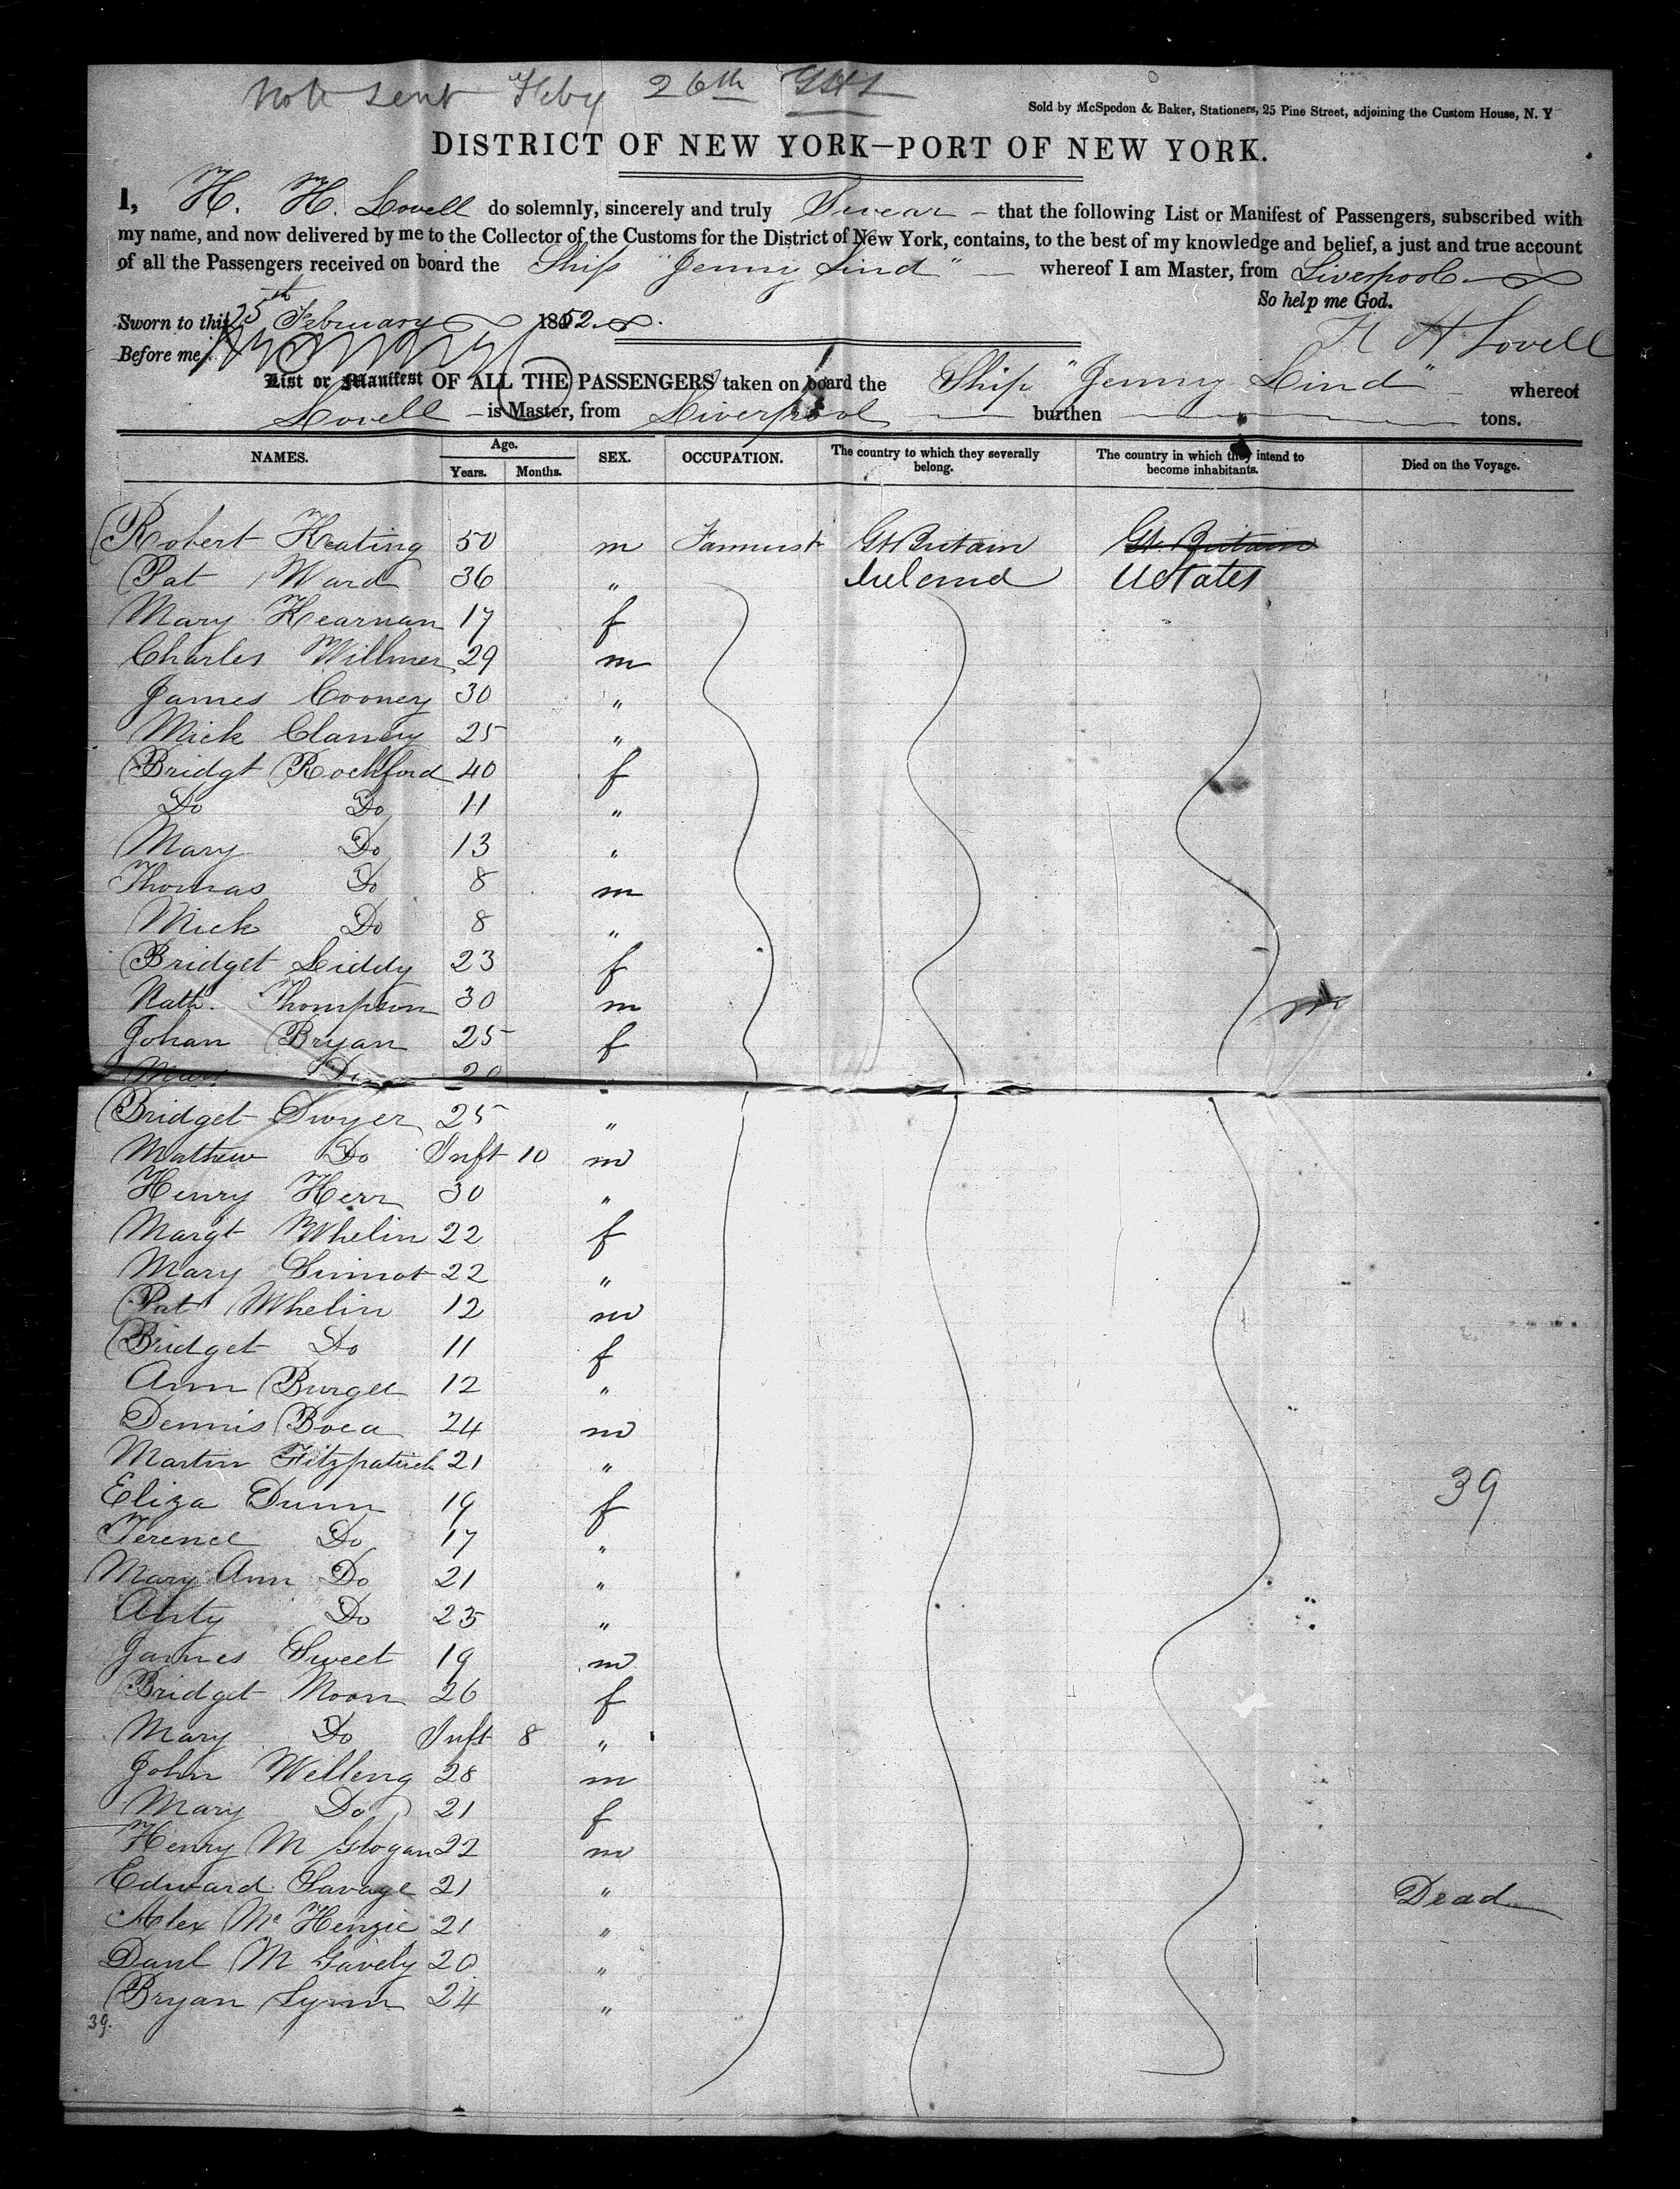 Note sent Feby 26th
Sold by McSpedon & Baker, Stationers, 25 Pine Street, adjoining the Custom House, N. Y
DISTRICT OF NEW YORK—PORT OF NEW YORK.
I, H. H. Lovell do solemnly, sincerely and truly Swear - that the following List or Manifest of Passengers, subscribed with
my name, and now delivered by me to the Collector of the Customs for the District of New York, contains, to the best of my knowledge and belief, a just and true account
of all the Passengers received on board the Ship "Jenny Lind" whereof I am Master, from Liverpool
So help me God.
Sworn to this 25th February 1852
H H Lovell
Before me,
List or Manifest OF ALL THE PASSENGERS taken on board the Ship "Jenny Lind" whereof
Lovell is Master, from Liverpool burthen tons.
NAMES. Age. Years. Months. SEX. OCCUPATION. The country to which they severally belong. The country in which they intend to become inhabitants. Died on the Voyage.
Robert Keating 50 m Gt Britain Gt Britain
Pat Ward 36 " Ireland UStates
Mary Kearnan 17 f
Charles Willmer 29 m
James Cooney 30 "
Mick Clancy 25 "
Bridgt Rochford 40 f
Do Do 11 "
Mary Do 13 "
Thomas Do 8 m
Mick Do 8 "
Bridget Liddy 23 f
Nath. Thompson 30 m
Johan Bryan 25 f
Mary Do 20
Bridget Dwyer 25 "
Mathew Do Inft 10 m
Henry Kerr 30 "
Margt Whelin 22 f
Mary Sinnot 22 "
Pat Whelin 12 m
Bridget Do 11 f
Ann Burgee 12 "
Dennis Boca 24 m
Martin Fitzpatrick 21 "
39
Eliza Dunn 19 f
Terence Do 17 "
Mary Ann Do 21 "
Anty Do 23 "
James Sweet 19 m
Bridget Moon 26 f
Mary Do Inft 8 "
John Welleng 28 m
Mary Do 21 f
Henry M Grogan 22 m
Edward Savage 21 " Dead
Alex Mc Kenzie 21 "
Danl M Gavely 20 "
Bryan Lynn 24 "
39.